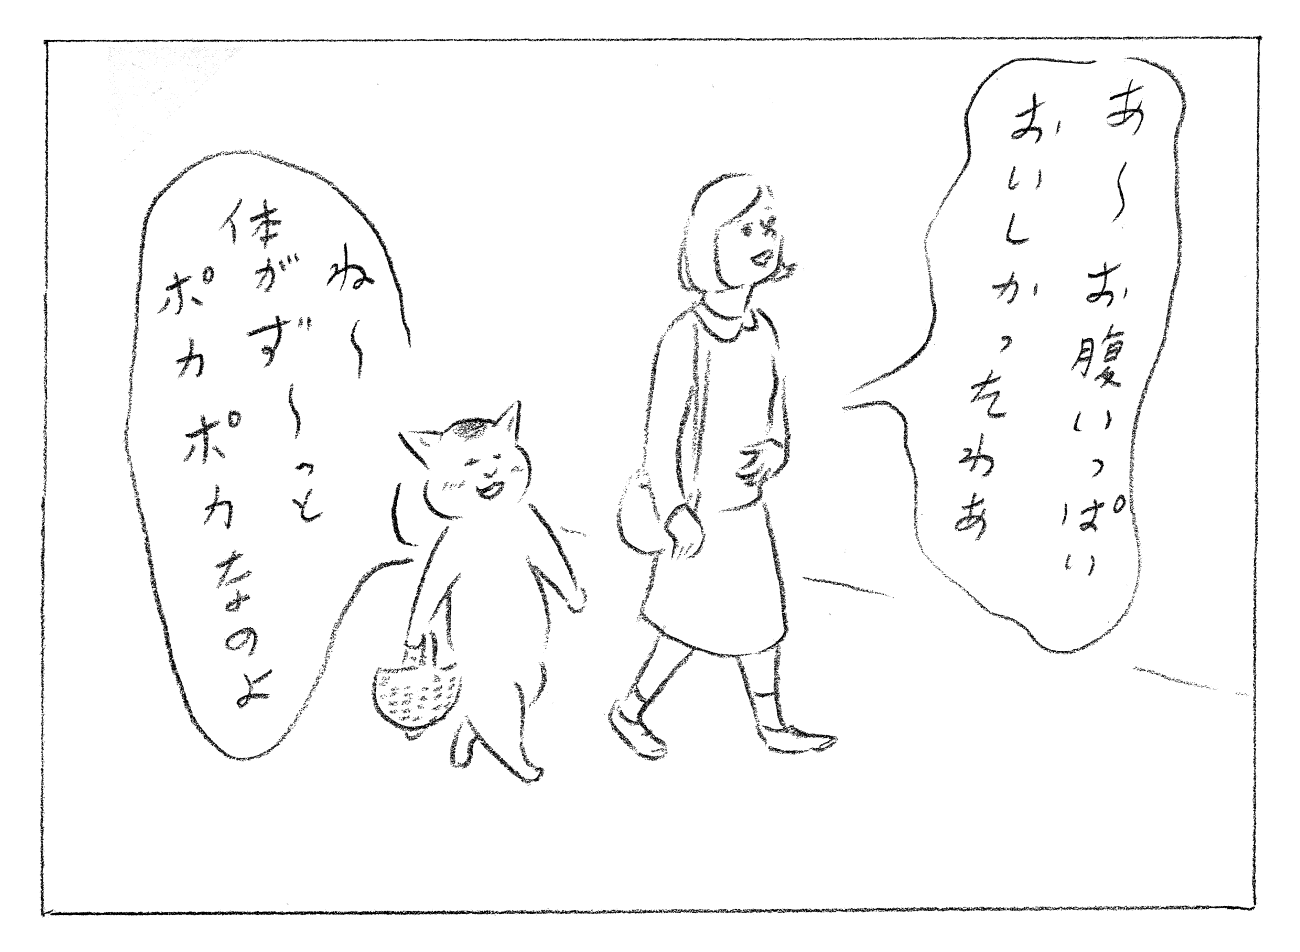 あ〜お腹いっぱい
おいしかったわぁ
ね〜
体がず〜っと
ポカポカなのよ